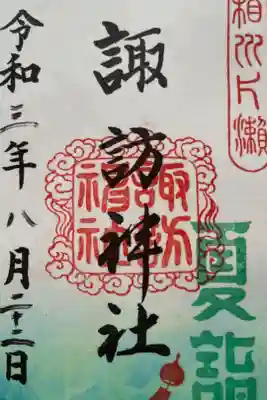 相州片瀬
諏訪神社
諏訪神社
夏詣
令和三年八月二十二日